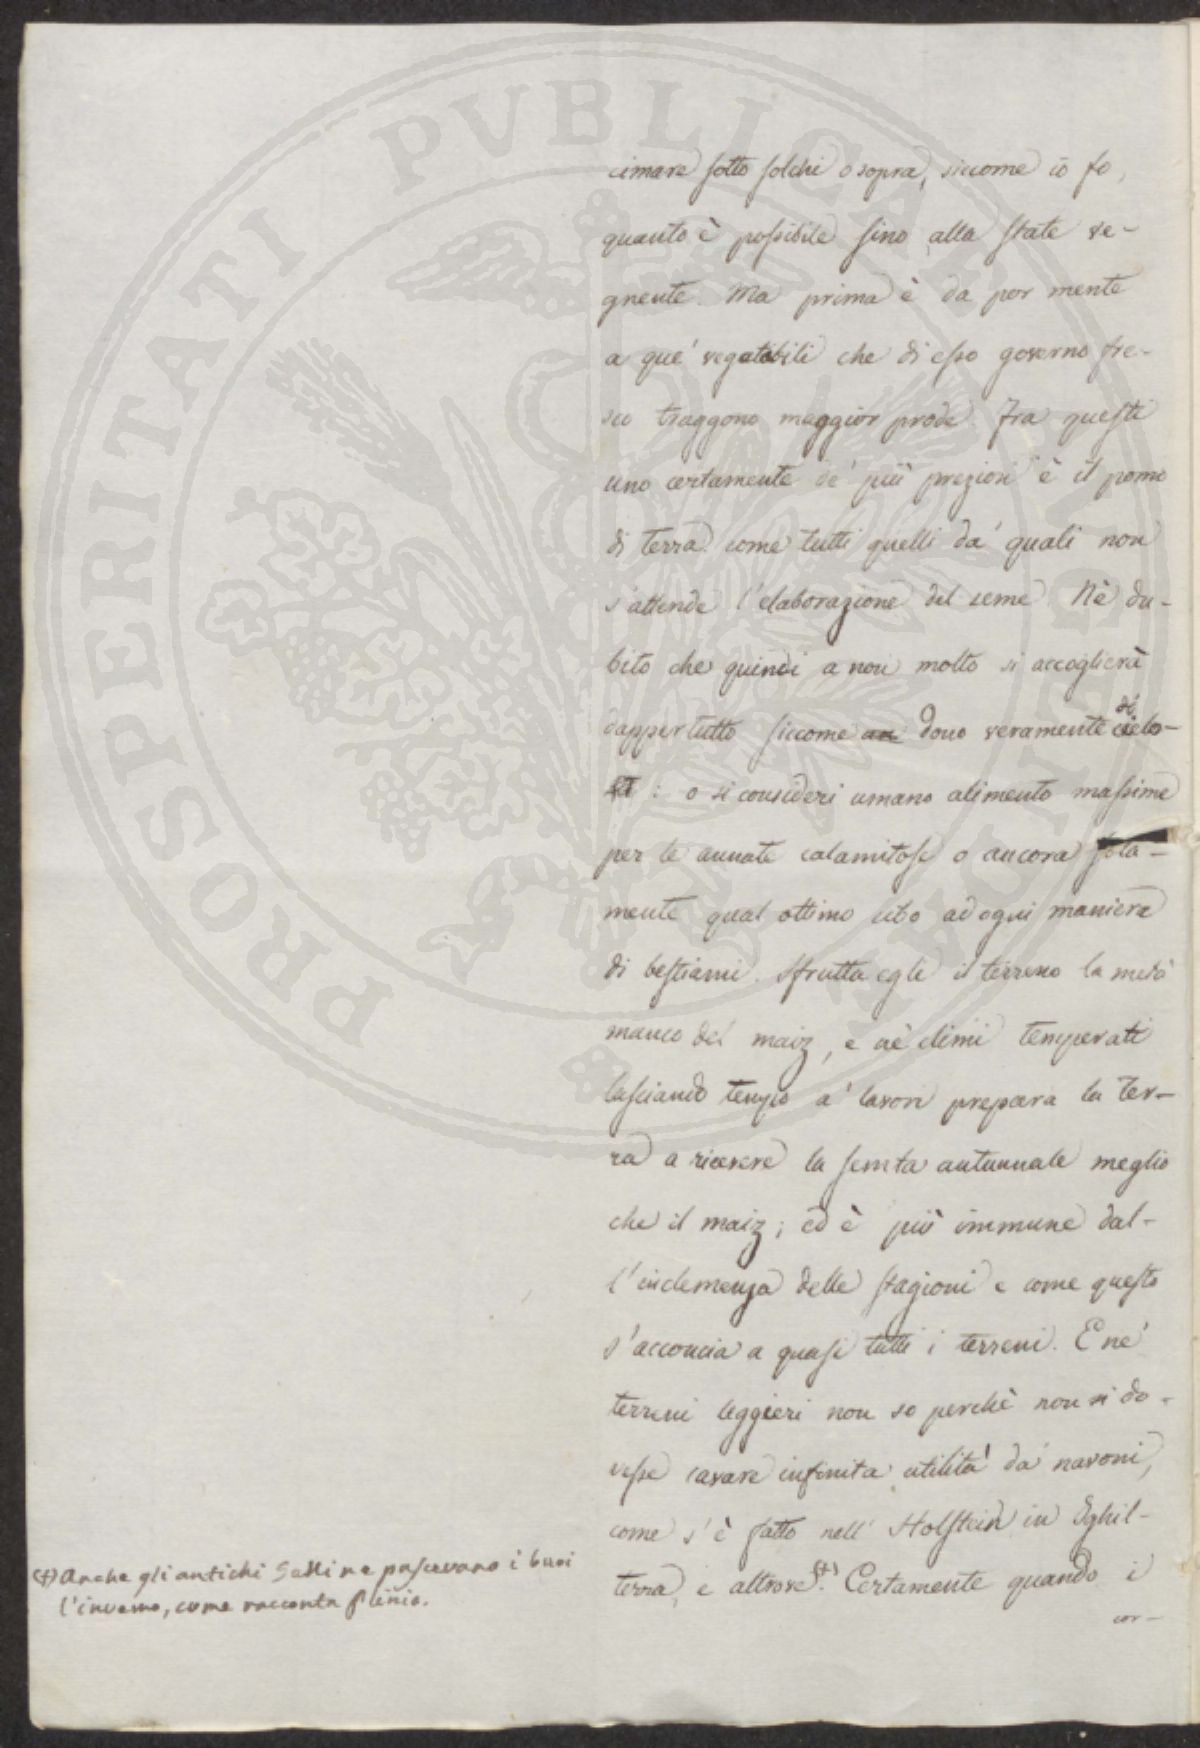 cimare sotto solchi o sopra, siccome io fo,
quanto è possibile sino alla state se-
gnente. Ma prima è da por mente
a que' vegetabili che di esso governo fre-
sco traggono maggior prode. Fra questi
uno certamente de' più preziosi è il pomo
di terra come tutti quelli da' quali non
s'attende l'elaborazione del seme. Nè du-
bito che quindi a non molto si accoglierà
dappertutto siccome un dono veramente di cielo-
: o si consideri umano alimento massime
per le annate calamitose o ancora sola-
mente qual ottimo cibo ad ogni maniera
di bestiami. Sfrutta egli il terreno la metà
manco del maiz, e ne' climi temperati
lasciando tempo a' lavori prepara la ter-
ra a ricevere la semta autunnale meglio
che il maiz; ed è più immune dal-
l'inclemenza delle stagioni e come questo
s'acconcia a quasi tutti i terreni. E ne'
terreni leggieri non so perchè non si do-
vesse cavare infinita utilità da' navoni,
come s'è fatto nell' Holstein in Inghil-
terra, e altrove (+). Certamente quando i
cor-
(+) Anche gli antichi Galli ne pascevano i buoi
l'inverno, come racconta Plinio.
PROSPERITATI PVBLICAE AVGENDAE